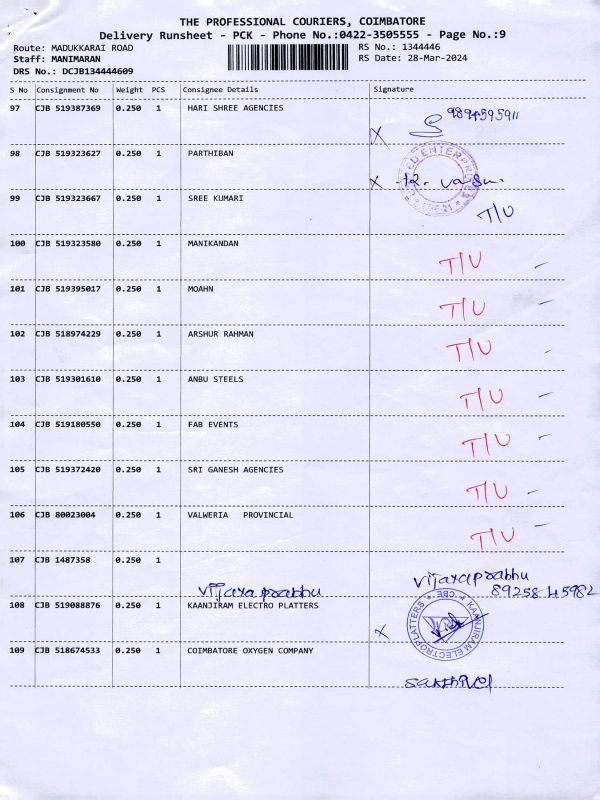 THE PROFESSIONAL COURIERS, COIMBATORE
Delivery Runsheet - PCK - Phone No.:0422-3505555 - Page No.:9
Route: MADUKKARAI ROAD RS No.: 1344446
Staff: MANIMARAN RS Date: 28-Mar-2024
DRS No.: DCJB134444609
S No Consignment No Weight PCS Consignee Details Signature
97 CJB 519387369 0.250 1 HARI SHREE AGENCIES
X
98 CJB 519323627 0.250 1 PARTHIBAN
X
99 CJB 519323667 0.250 1 SREE KUMARI T/U
100 CJB 519323580 0.250 1 MANIKANDAN T/U
101 CJB 519395017 0.250 1 MOAHN T/U
102 CJB 518974229 0.250 1 ARSHUR RAHMAN T/U
103 CJB 519301610 0.250 1 ANBU STEELS T/U
104 CJB 519180550 0.250 1 FAB EVENTS T/U
105 CJB 519372420 0.250 1 SRI GANESH AGENCIES T/U
106 CJB 80023004 0.250 1 VALWERIA PROVINCIAL T/U
107 CJB 1487358 0.250 1
vijaya prabhu vijayaprabhu
89258 45982
108 CJB 519088876 0.250 1 KAANJIRAM ELECTRO PLATTERS
X KAANJIRAM ELECTROPLATTERS * CBE *
109 CJB 518674533 0.250 1 COIMBATORE OXYGEN COMPANY